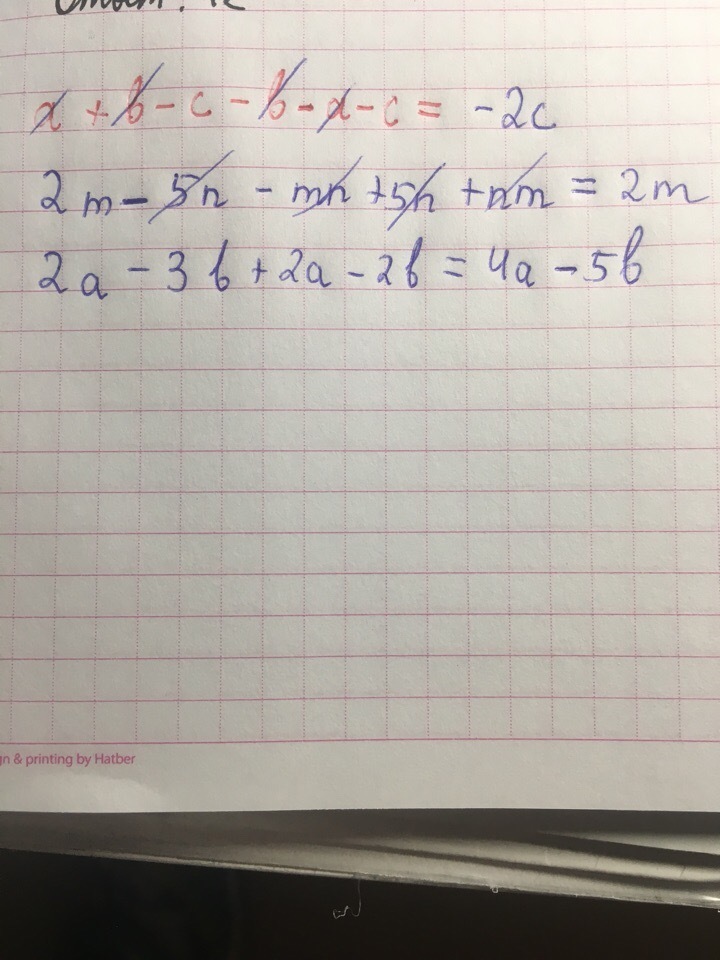 x + b - c - b - x - c = -2c
2m - 5n - mn + 5n + nm = 2m
2a - 3b + 2a - 2b = 4a - 5b
gn & printing by Hatber